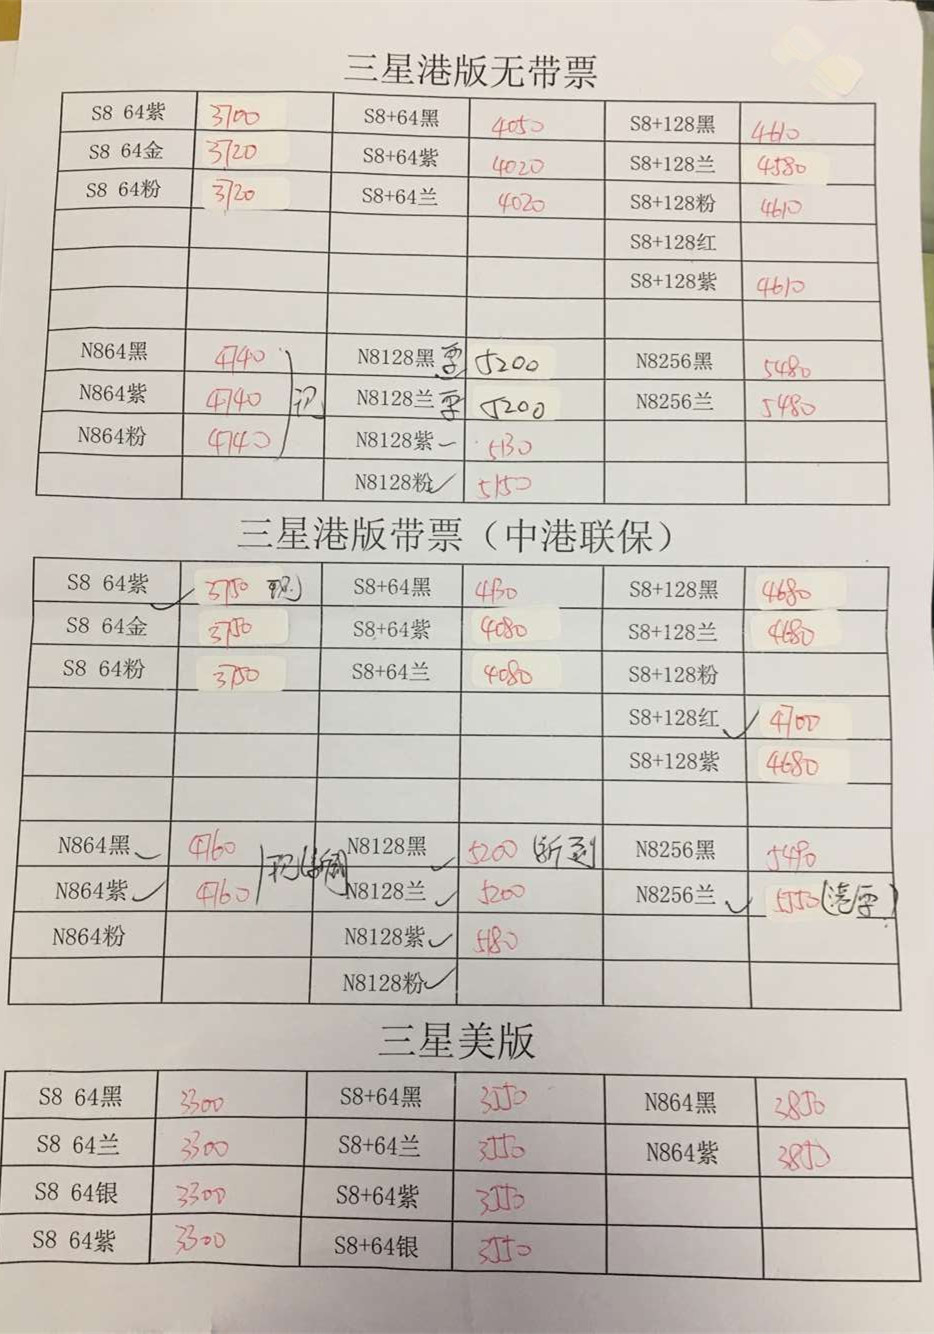 三星港版无带票
S8 64紫 3700 S8+64黑 4050 S8+128黑 4610
S8 64金 3720 S8+64紫 4020 S8+128兰 4580
S8 64粉 3720 S8+64兰 4020 S8+128粉 4610
S8+128红
S8+128紫 4610
N864黑 4740 N8128黑 5200 N8256黑 5480
N864紫 4740 N8128兰 5200 N8256兰 5480
N864粉 4740 N8128紫 5130
N8128粉 5150
三星港版带票（中港联保）
S8 64紫 3750 现 S8+64黑 4130 S8+128黑 4680
S8 64金 3750 S8+64紫 4080 S8+128兰 4680
S8 64粉 3750 S8+64兰 4080 S8+128粉
S8+128红 4700
S8+128紫 4680
N864黑 4760 N8128黑 5200 N8256黑 5490
N864紫 4760 N8128兰 5200 N8256兰 5550
N864粉 N8128紫 5180
N8128粉
三星美版
S8 64黑 3300 S8+64黑 3550 N864黑 3850
S8 64兰 3300 S8+64兰 3550 N864紫 3850
S8 64银 3300 S8+64紫 3550
S8 64紫 3300 S8+64银 3550